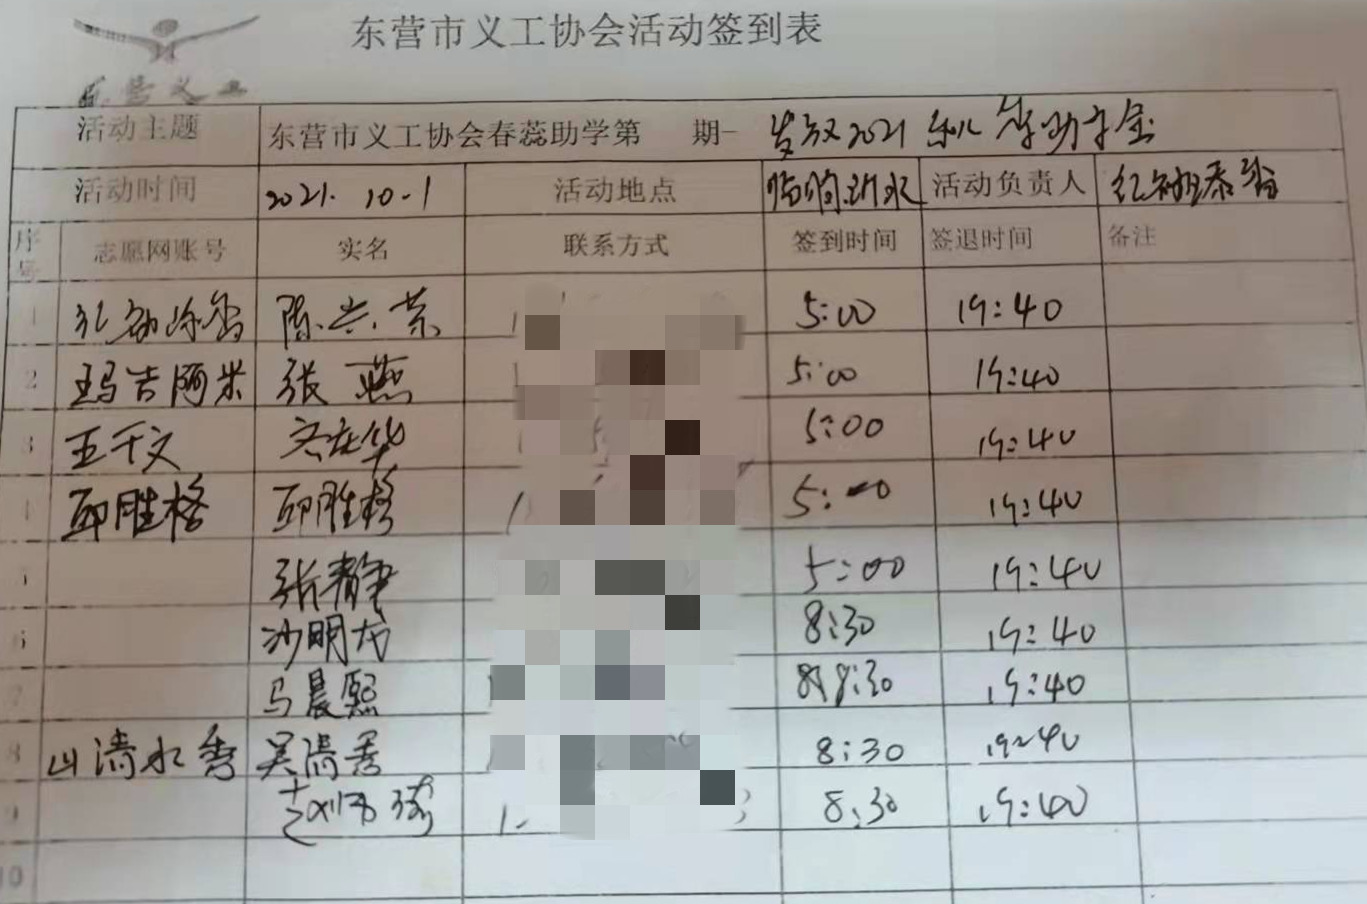 东营市义工协会活动签到表
东营义工
活动主题 东营市义工协会春蕊助学第 期- 发放2021 助学金
活动时间 2021.10-1 活动地点 临朐沂水 活动负责人
序号 志愿网账号 实名 联系方式 签到时间 签退时间 备注
1 陈兴荣 1 5:00 19:40
2 玛吉阿米 张燕 5:00 19:40
3 王千文 5:00 19:40
4 邱胜格 邱胜格 1 5:00 19:40
5 张静 5:00 19:40
6 沙明龙 8:30 19:40
7 马晨熙 8:30 19:40
8 山清水秀 吴清秀 8:30 19:40
9 赵 1 8:30 19:40
10